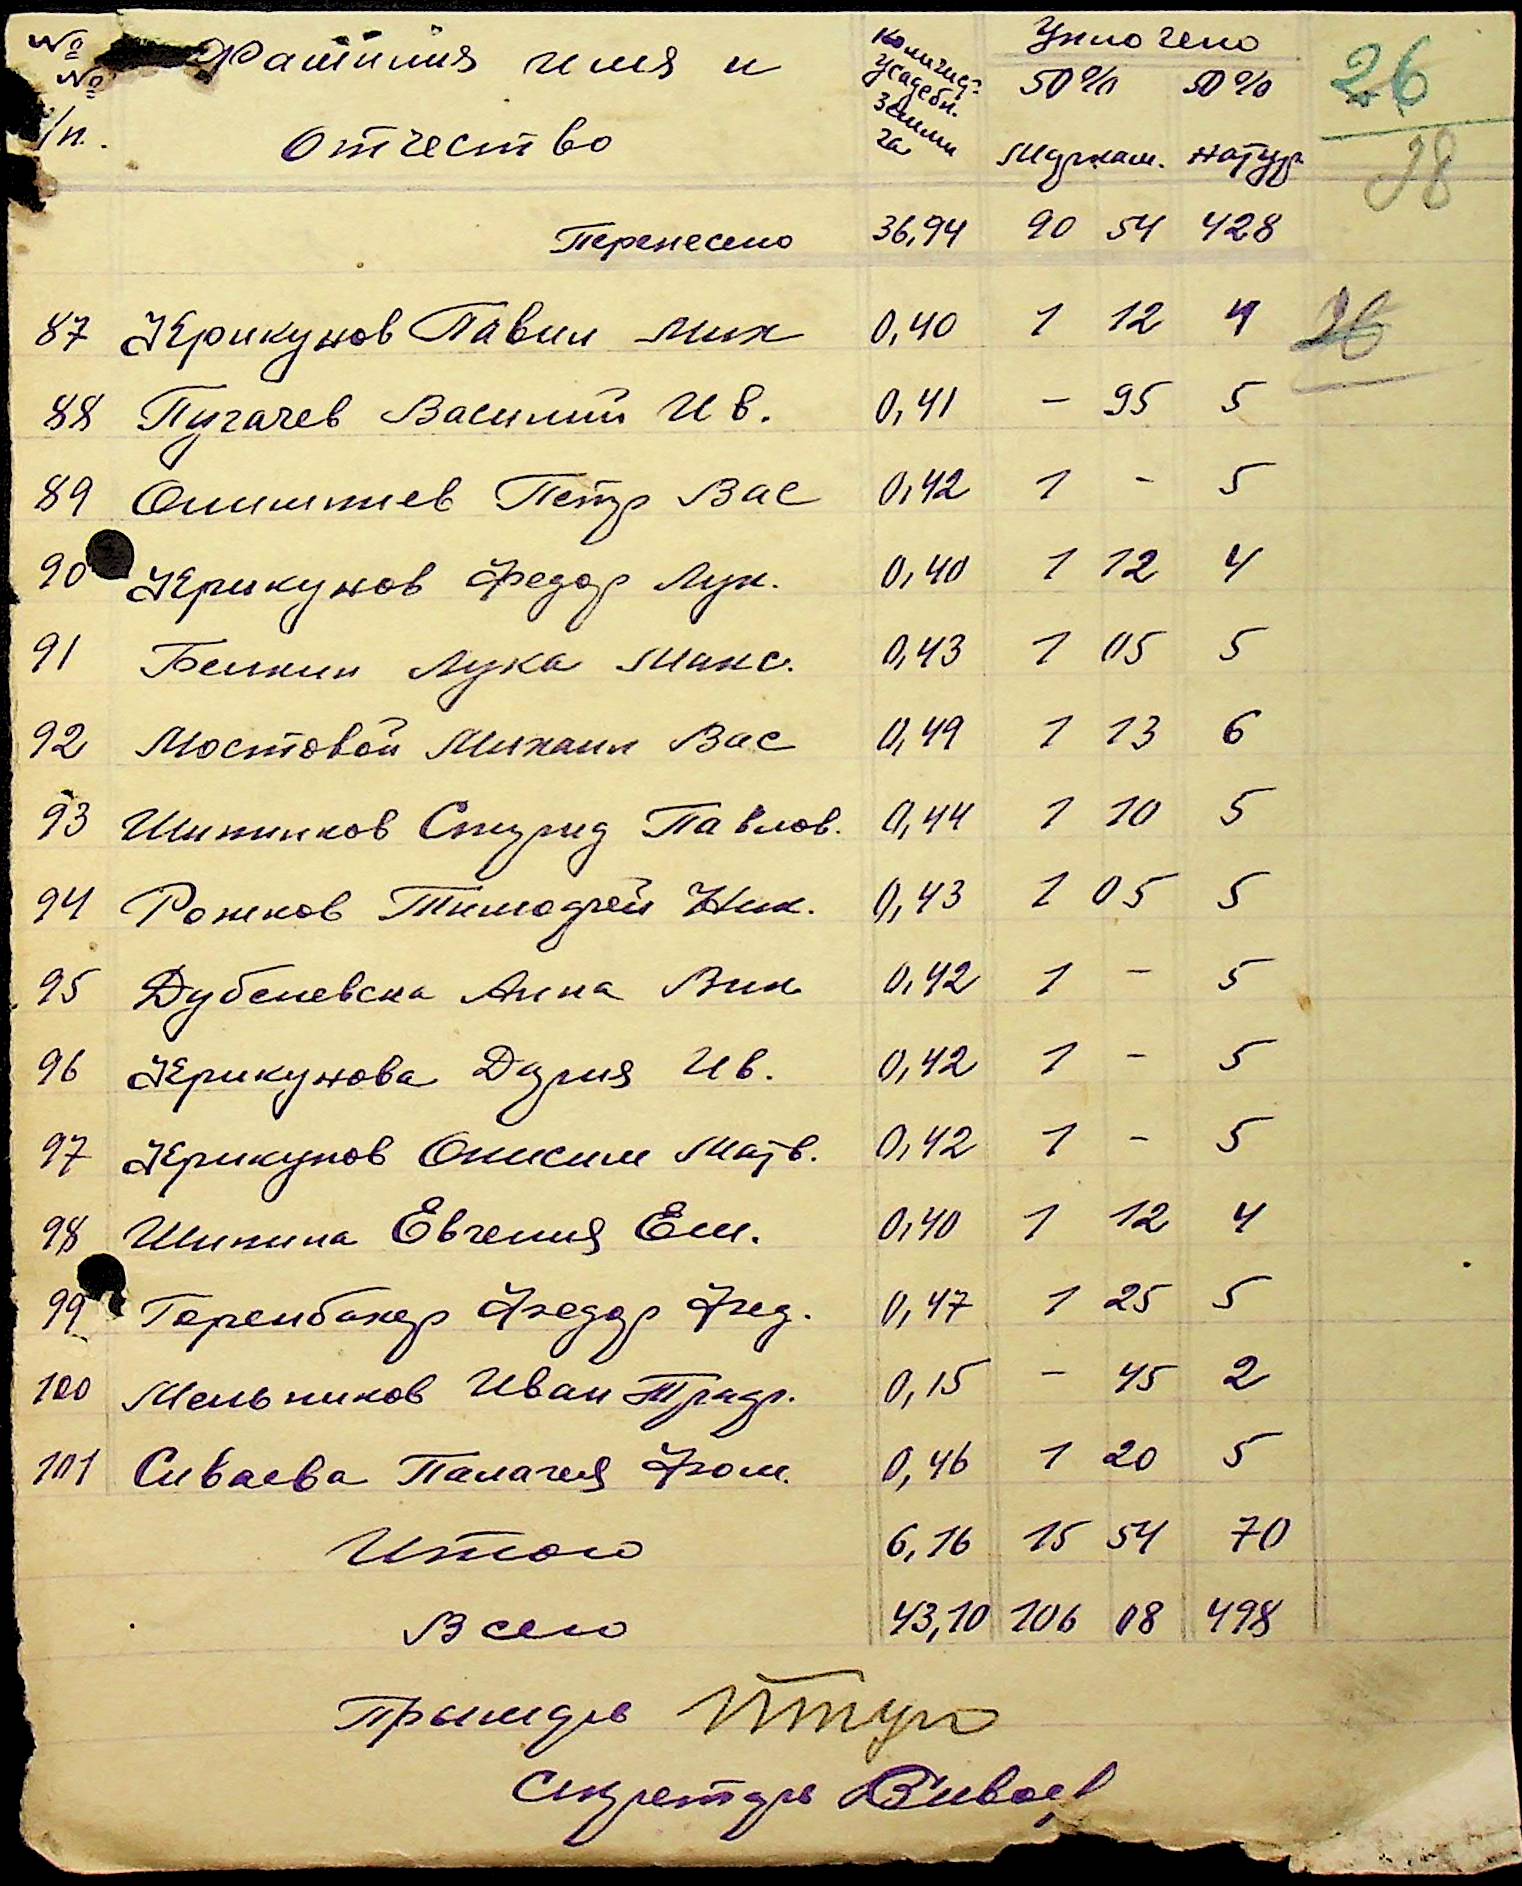 № Фамилия имя и Количест. Уплочено 26
№ усадебн. 50% 50%
п/п. Отчество земли га натур 28
Перенесено 36,94 90 54 428
87 Крикунов Павил Мих 0,40 1 12 4 26
88 Пугачев Василий Ив. 0,41 – 95 5
89 Петр Вас 0,42 1 – 5
90 Крикунов Федор Лук. 0,40 1 12 4
91 Белкин Лука Макс. 0,43 1 05 5
92 Мостовой Михаил Вас 0,49 1 13 6
93 Спирид Павлов. 0,44 1 10 5
94 Рожков Тимофей Ник. 0,43 1 05 5
95 Анна 0,42 1 – 5
96 Крикунова Дария Ив. 0,42 1 – 5
97 Крикунов Онисим Матв. 0,42 1 – 5
98 Шипина Евгения Ем. 0,40 1 12 4
99 Федор Фед. 0,47 1 25 5
100 Мельников Иван 0,15 – 45 2
101 Сиваева Палагея Фом. 0,46 1 20 5
Итого 6,16 15 54 70
Всего 43,10 106 08 498
Секретарь Сиваев